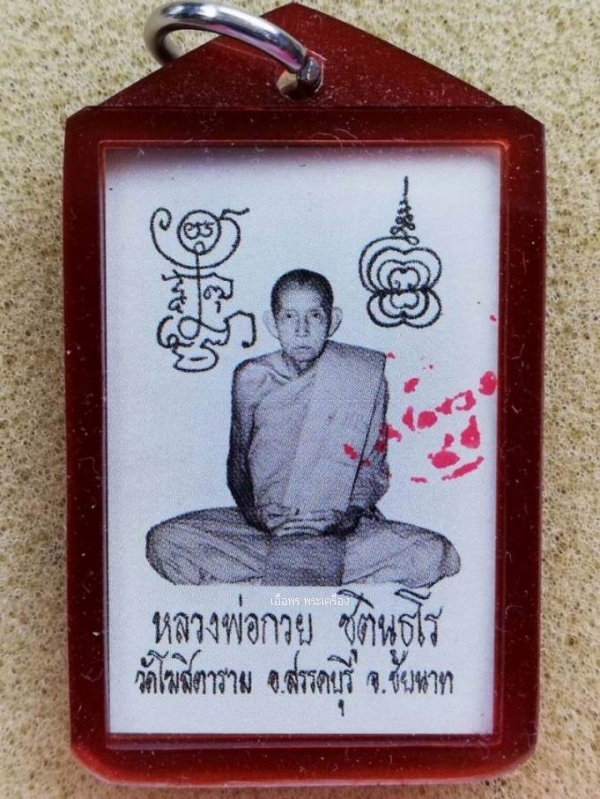 เอื้อพร พระเครื่อง
หลวงพ่อกวย ชุตินฺธโร
วัดโฆสิตาราม อ.สรรคบุรี จ.ชัยนาท